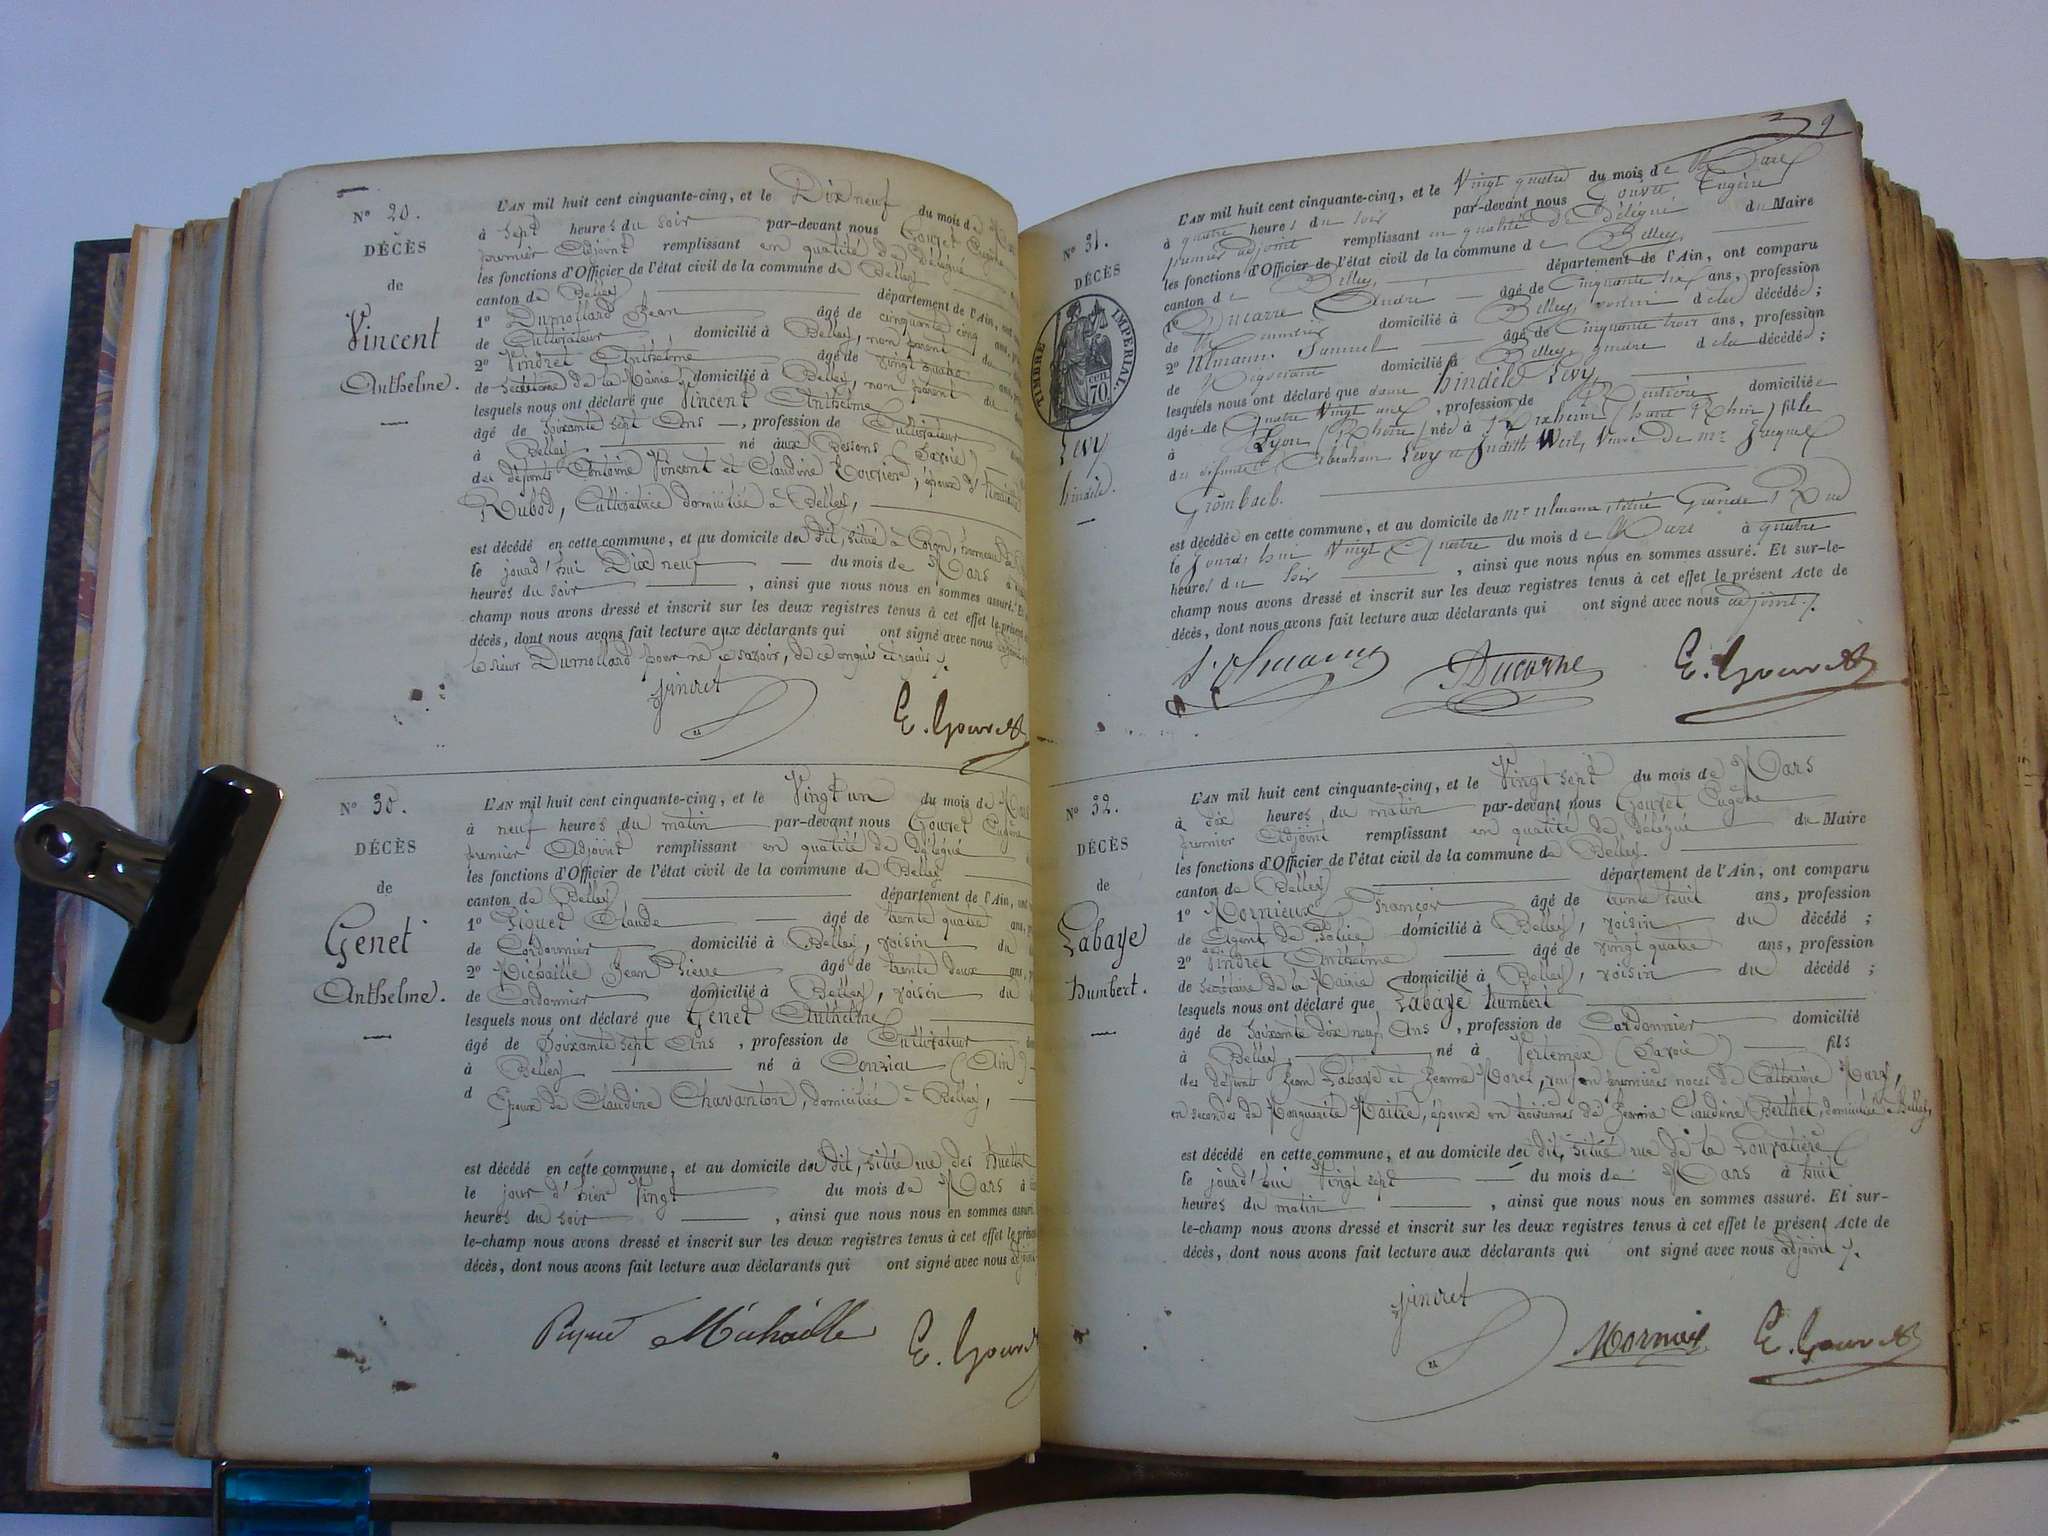 N° 29.
DÉCÈS
de
Vincent
Anthelme.
L'AN mil huit cent cinquante-cinq, et le Dix neuf du mois de
à sept heures du soir par-devant nous Gouvet Eugène
premier Adjoint remplissant en qualité de délégué
les fonctions d'Officier de l'état civil de la commune de Belley
canton de Belley département de l'Ain, ont
1° Dumollard Jean âgé de cinquante cinq ans,
de Cultivateur domicilié à Belley, non parent du
2° Vindret Anthelme âgé de vingt quatre ans,
de secrétaire de la Mairie domicilié à Belley, non parent du
lesquels nous ont déclaré que Vincent Anthelme
âgé de soixante sept Ans, profession de Cultivateur
à Belley né aux Bessons (Savoie)
des défunts Antoine Vincent et Claudine, époux de
Rubod, Cultivatrice domiciliée à Belley,
est décédé en cette commune, et au domicile du dit, situé à Coron, hameau de
le jourd'hui Dix neuf du mois de Mars à
heures du soir, ainsi que nous nous en sommes assuré. Et
champ nous avons dressé et inscrit sur les deux registres tenus à cet effet le présent
décès, dont nous avons fait lecture aux déclarants qui ont signé avec nous adjoint
le sieur Dumollard pour ne le savoir, de ce enquis et requis ./.
Vindret
E. Gouvet
N° 30.
DÉCÈS
de
Genet
Anthelme.
L'AN mil huit cent cinquante-cinq, et le Vingt un du mois de Mars
à neuf heures du matin par-devant nous Gouvet Eugène
premier Adjoint remplissant en qualité de délégué
les fonctions d'Officier de l'état civil de la commune de Belley
canton de Belley département de l'Ain, ont
1° Piquet Claude âgé de trente quatre ans,
de Cordonnier domicilié à Belley, voisin du
2° Michaille Jean Pierre âgé de trente deux ans,
de Cordonnier domicilié à Belley, voisin du
lesquels nous ont déclaré que Genet Anthelme
âgé de Soixante sept Ans, profession de Cultivateur
à Belley né à Conzieu (Ain)
d Epoux de Claudine Chavanton, domiciliée à Belley,
est décédé en cette commune, et au domicile du dit, situé rue des
le jour d'hier Vingt du mois de Mars à
heures du soir, ainsi que nous nous en sommes assuré.
le-champ nous avons dressé et inscrit sur les deux registres tenus à cet effet le présent
décès, dont nous avons fait lecture aux déclarants qui ont signé avec nous adjoint
Piquet Michaille
E. Gouvet
9
N° 31.
DÉCÈS
TIMBRE IMPÉRIAL.
70 cen
Levy
hindèle.
L'AN mil huit cent cinquante-cinq, et le Vingt quatre du mois de Mars
à quatre heures du soir par-devant nous Gouvet Eugène
premier adjoint remplissant en qualité de Délégué du Maire
les fonctions d'Officier de l'état civil de la commune de Belley.
canton de Belley, département de l'Ain, ont comparu
1° Ducarre André âgé de Cinquante six ans, profession
de domicilié à Belley, voisin de la décédée;
2° Ulmann Samuel âgé de Cinquante trois ans, profession
de Négociant domicilié à Belley, gendre de la décédée;
lesquels nous ont déclaré que dame hindèle Levy,
âgée de Quatre Vingt ans, profession de Rentière domiciliée
à Lyon (Rhône) née à Rixheim (haut Rhin) fille
des défunts Abraham Levy et Judith Weil, Veuve de Mr Jacques
Grombach.
est décédée en cette commune, et au domicile de Mr Ulmann, situé Grande Rue
le Jourd'hui Vingt Quatre du mois de Mars à quatre
heures du soir, ainsi que nous nous en sommes assuré. Et sur-le-
champ nous avons dressé et inscrit sur les deux registres tenus à cet effet le présent Acte de
décès, dont nous avons fait lecture aux déclarants qui ont signé avec nous adjoint ./.
S. Ulmann Ducarre E. Gouvet
N° 32.
DÉCÈS
de
Labaye
humbert.
L'AN mil huit cent cinquante-cinq, et le Vingt sept du mois de Mars
à dix heures du matin par-devant nous Gouvet Eugène
premier Adjoint remplissant en qualité de délégué du Maire
les fonctions d'Officier de l'état civil de la commune de Belley.
canton de Belley département de l'Ain, ont comparu
1° Mornieux François âgé de trente huit ans, profession
de Agent de Police domicilié à Belley, voisin du décédé;
2° Vindret Anthelme âgé de vingt quatre ans, profession
de secrétaire de la Mairie domicilié à Belley, voisin du décédé;
lesquels nous ont déclaré que Labaye humbert
âgé de Soixante dix neuf Ans, profession de Cordonnier domicilié
à Belley, né à Vertemex (Savoie) fils
des défunts Jean Labaye et Jeanne Morel, veuf en premières noces de Catherine
en secondes de Marguerite Maitre, époux en troisièmes de Jeanne Claudine Berthet, domiciliée à Belley,
est décédé en cette commune, et au domicile du dit, situé rue de la Louvatière
le jourd'hui Vingt sept du mois de Mars à huit
heures du matin, ainsi que nous nous en sommes assuré. Et sur-
le-champ nous avons dressé et inscrit sur les deux registres tenus à cet effet le présent Acte de
décès, dont nous avons fait lecture aux déclarants qui ont signé avec nous adjoint ./.
Vindret
Mornieux E. Gouvet